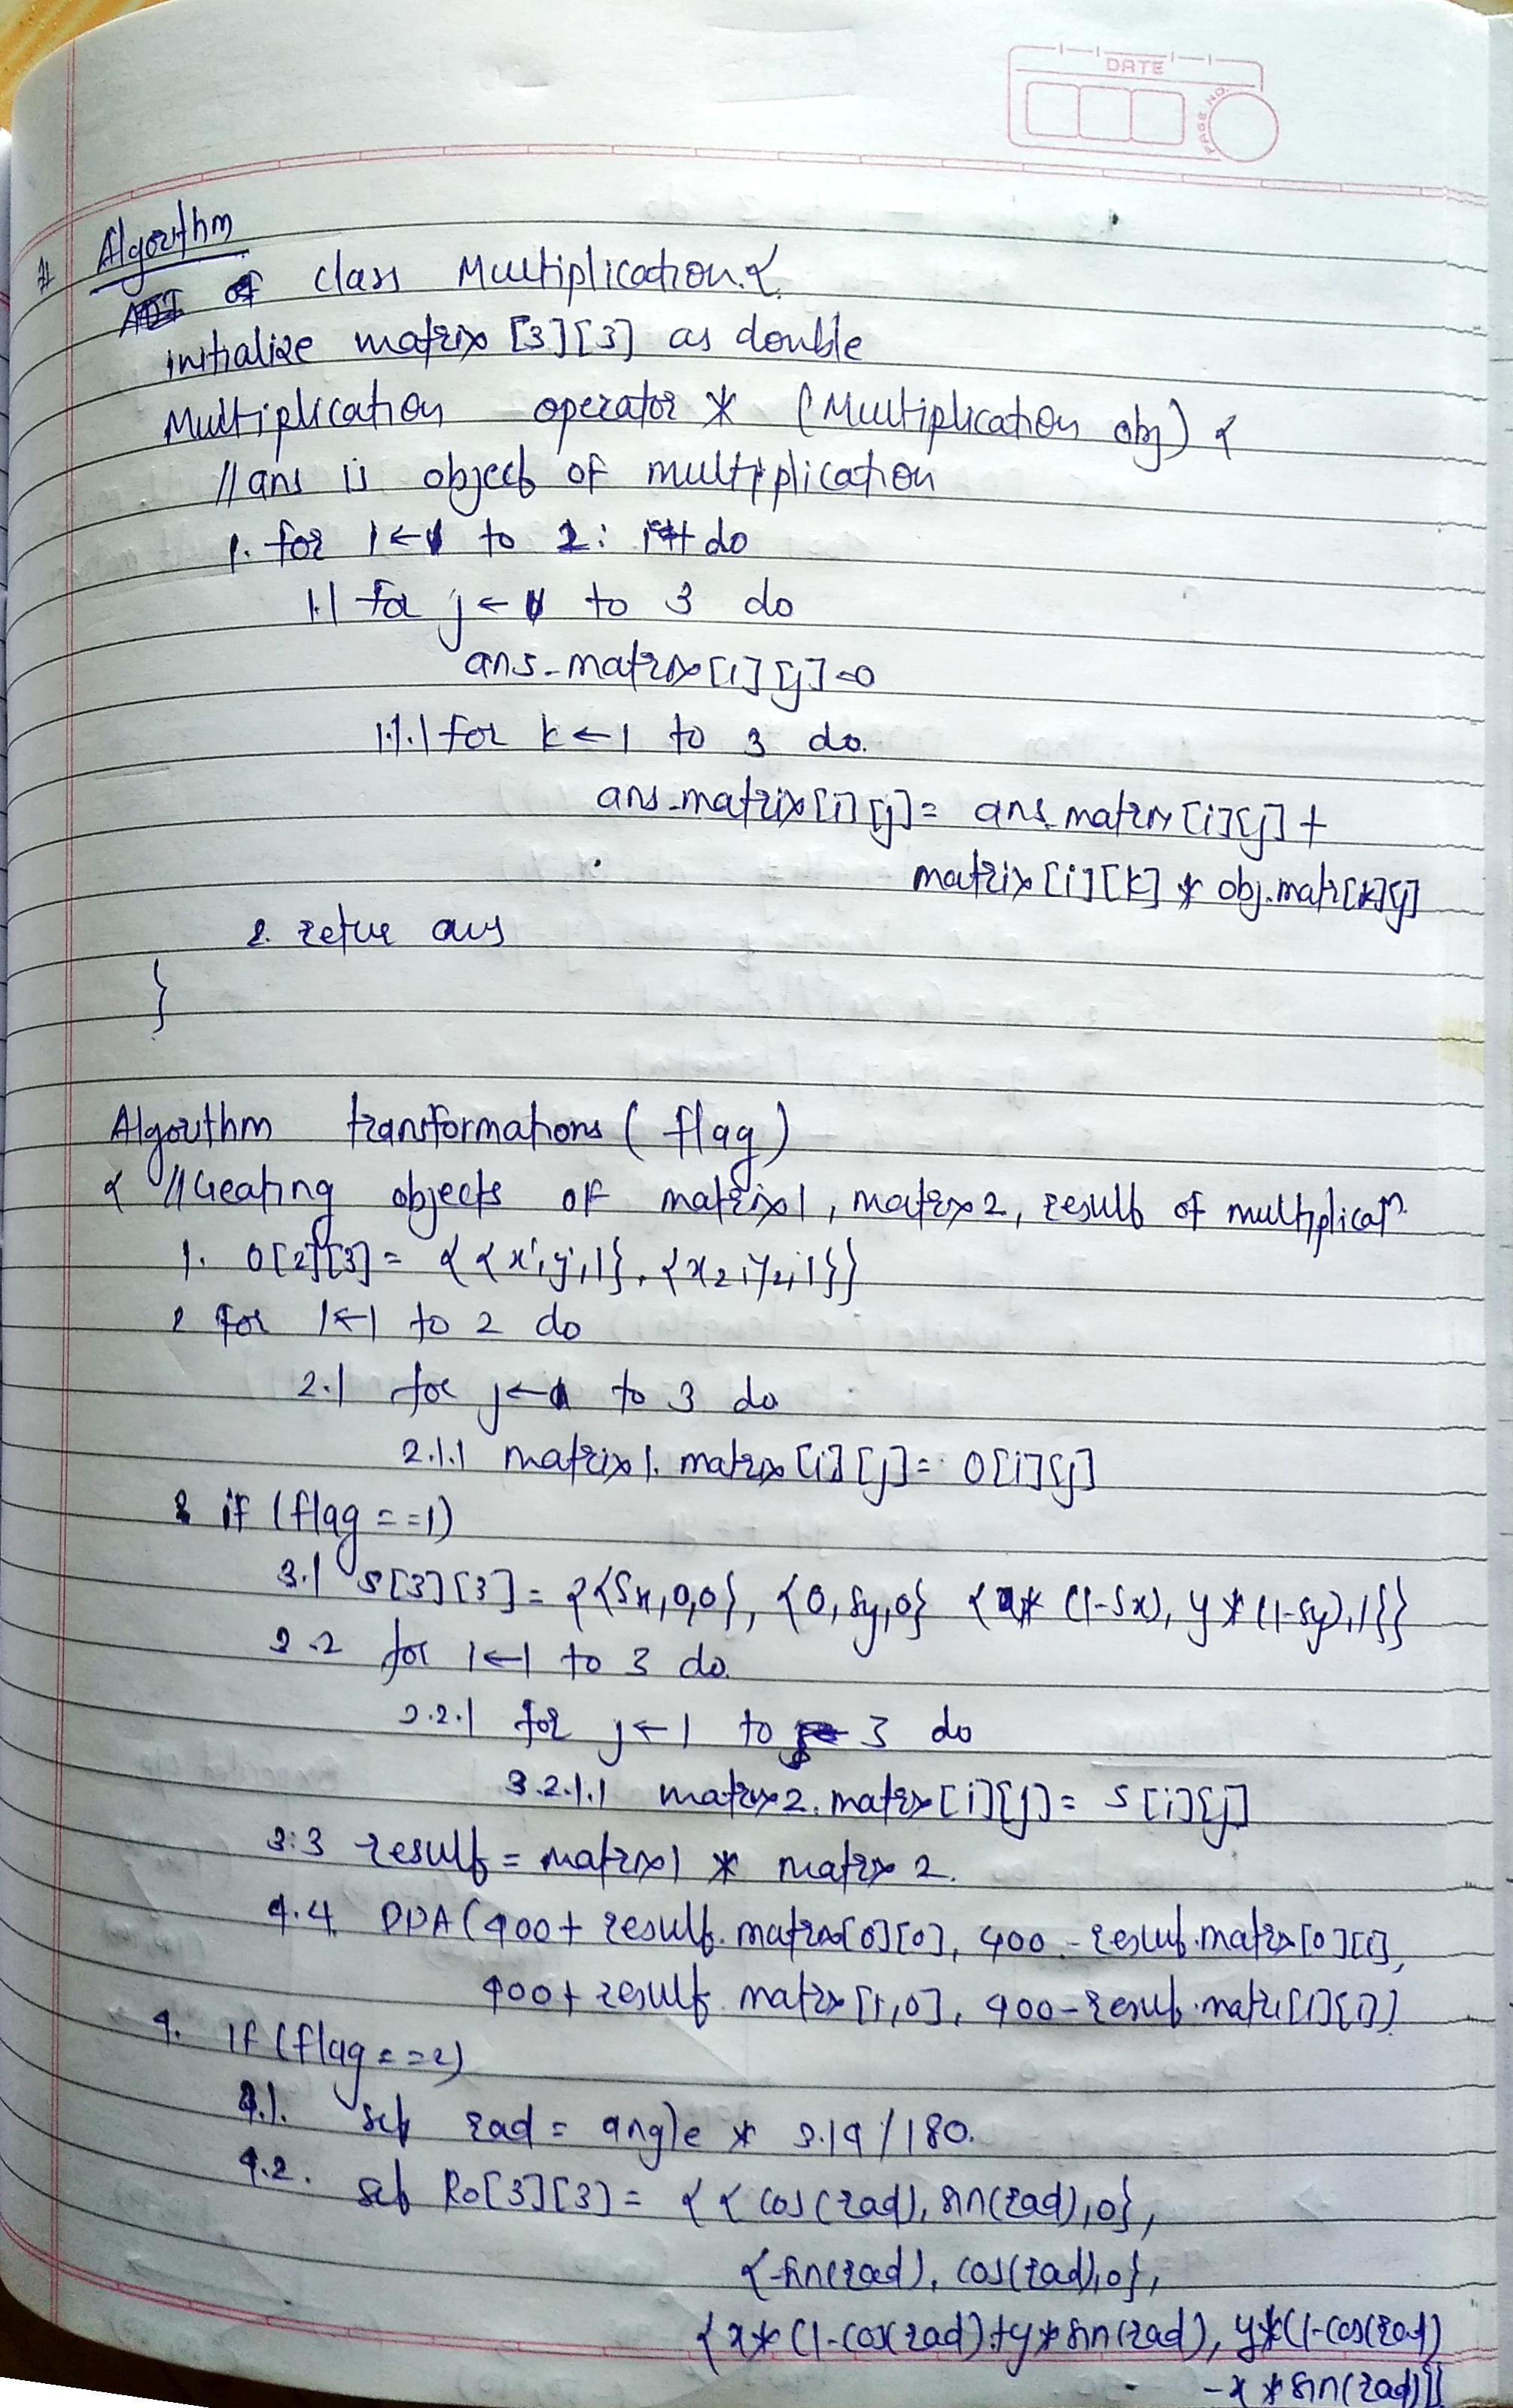 DATE
PAGE NO.
# Algorithm
of class Multiplication {
initialize matrix [3][3] as double
Multiplication operator * (Multiplication obj) {
// ans is object of multiplication
1. for i ← 1 to 2: do
1.1 for j ← 1 to 3 do
ans.matrix[i][j]=0
1.1.1 for k ← 1 to 3 do.
ans.matrix[i][j] = ans.matrix[i][j] +
matrix[i][k] * obj.matr[k][j]
2. ans
}
Algorithm transformations ( flag )
{ // Creating objects of matrix1, matrix2, result of multiplicatn.
1. O[2][3] = { { x, y, 1}, {x2, y2, 1}}
2 for i ← 1 to 2 do
2.1 for j ← 1 to 3 do
2.1.1 matrix1.matrix[i][j] = O[i][j]
3 if (flag == 1)
3.1 S[3][3] = {{Sx,0,0}, {0,Sy,0} {x* (1-Sx), y * (1-Sy),1}}
3.2 for i ← 1 to 3 do.
3.2.1 for j ← 1 to 3 do
3.2.1.1 matrix2.matrix[i][j] = S[i][j]
3.3 result = matrix1 * matrix 2.
4.4 DDA (400 + result.matrix[0][0], 400 - result.matrix[0][1],
400 + result.matrix[1,0], 400 - result.matri[1][1])
4. if (flag == 2)
4.1. set rad = angle * 3.14/180.
4.2. set Ro[3][3] = { { cos(rad), sin(rad),0},
{-sin(rad), cos(rad),0},
{x* (1-cos(rad)+y*sin(rad), y*(1-cos(rad)
-x * sin(rad)}}